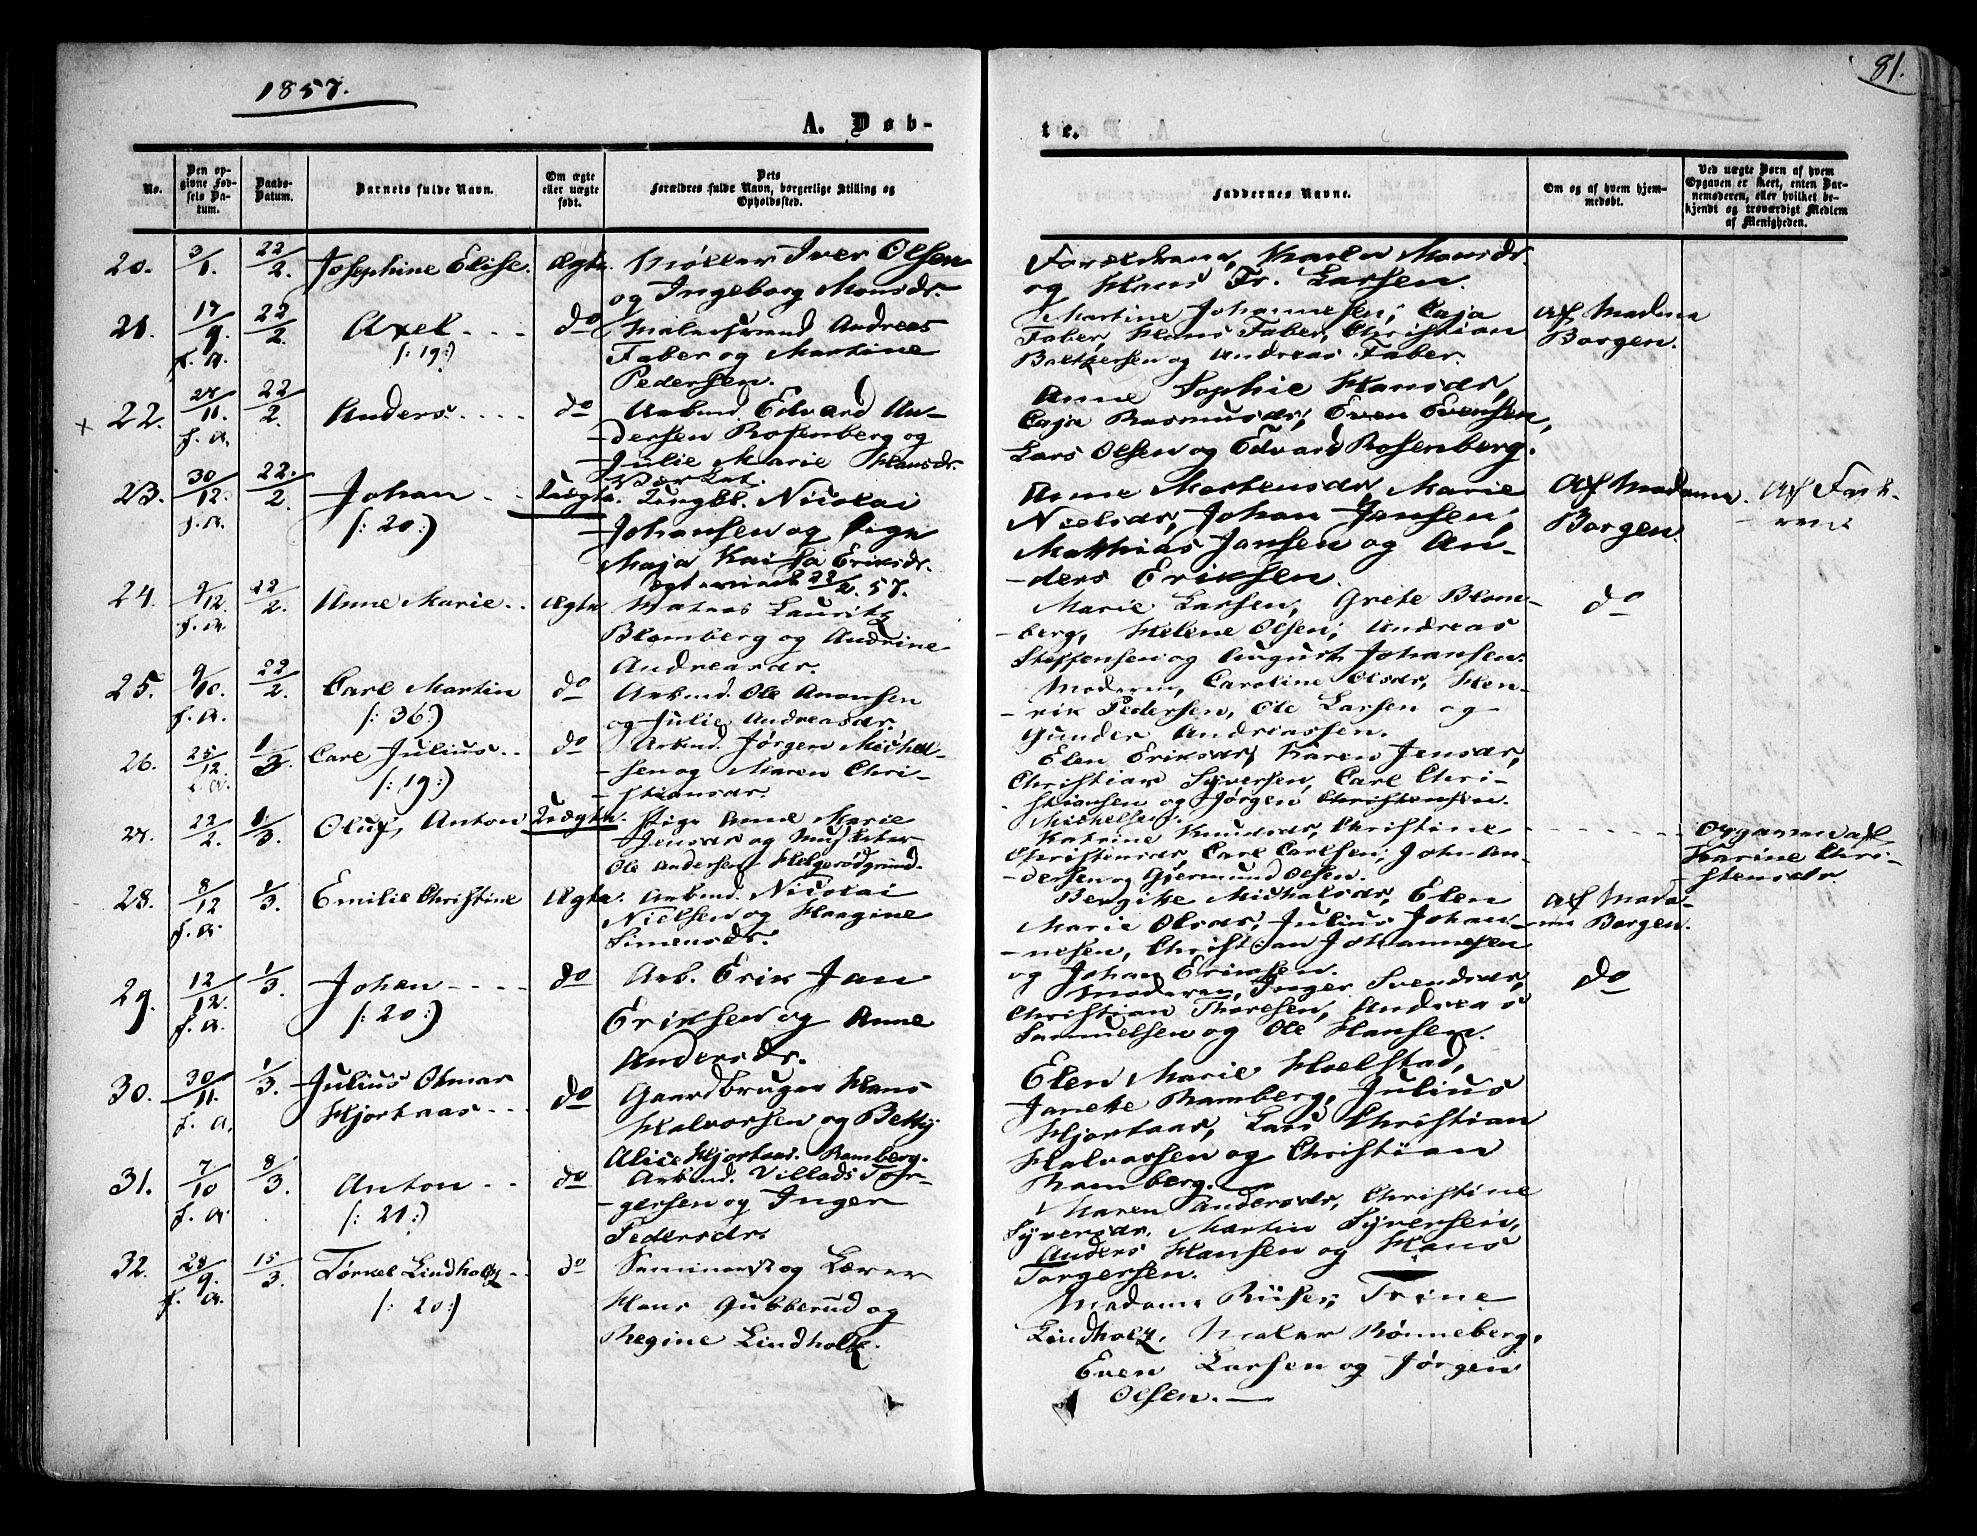 1857.
81.
A. Døb-
te.
No.
Den op-
givne Fød-
sels Da-
tum.
Daabs-
Datum.
Barnets fulde Navn.
Om ægte
eller uægte
født.
Dets
Forældres fulde Navn, borgerlige Stilling og
Opholdssted.
Faddernes Navne.
Om og af hvem hjem-
medøbt.
Ved uægte Børn af hvem
Opgaven er skeet, enten Bar-
nemoderen, eller hvilket be-
kjendt og troværdigt Medlem
af Menigheden.
20. 3/1. 22/2. Josephine Elise. Ægte.
Møller Iver Olsen
og Ingeborg Monsdr.
Forældrene, Karen Monsdr.
og Hans Fr. Larsen.
21. 17/9. f. A. 22/2. Axel
/: 19:/
do
Malersvend Andreas
Faber og Martine
Pedersen.
Martine Johannesen, Caja
Faber, Hans Faber, Christian
Balthersen og Andreas Faber.
Af Madam
Borgen.
x 22. 27/11. f. A. 22/2. Anders do
Arbmd. Edvard An-
dersen Rosenberg og
Julie Marie Hansdr.
Anne Sophie Hansdr,
Caja Rasmusdr, Even Evensen,
Lars Olsen og Edvard Rosenberg.
23. 30/12. f. A. 22/2. Johan
/: 20:/
Uægte.
Ungkl. Nicolai
Johansen og Pige
Maja Kaisa Eriksdr.
22/2. 57.
Anne Mortensdr, Marie
Nielsdr, Johan Jansen,
Matthias Jansen og An-
ders Eriksen.
Af Madame
Borgen.
Af Fad-
24. 9/12. f. A. 22/2. Anne Marie Ægte
Matros Lauritz
Blomberg og Andrine
Andreasdr.
Marie Larsen, Grete Blom-
berg, Helene Olsen, Andreas
Steffensen og August Johansen.
do
25. 9/10. f. A. 22/2. Carl Martin
/: 36:/
do
Arbmd. Ole Aronsen
og Julie Andreasdr.
Moderen, Caroline Olsdr, Hen-
rik Pedersen, Ole Larsen og
Gunder Andreassen.
26. 25/12. f. A. 1/3. Carl Julius
/: 19:/
do
Arbmd. Jørgen Michel-
sen og Maren Chri-
stiansdr.
Elen Eriksdr, Karen Jensdr,
Christian Syversen, Carl Chri-
stiansen og Jørgen Christensen.
Michelsen.
27. 22/2. 1/3. Oluf Anton Uægte.
Pige Anne Marie
Jensdr og Musketer
Ole Andersen Helgerødgrind.
Katrine Knudsdr, Christine
Christensdr, Carl Carlsen, Joh. An-
dersen og Gjermund Olsen.
Opgaven af
Karine Chri-
stensdr.
28. 8/12 f. A. 1/3. Emilie Christine Ægte.
Arbmd. Nicolai
Nielsen og Hangine
Simensdr.
Bergitte Michalsdr, Elen
Marie Olsdr, Julius Johan-
nesen, Christian Johannesen
og Johan Eriksen.
Af Mada-
me Borgen.
29. 12/12. f. A. 1/3. Johan
/: 20:/
do
Arb. Erik Jan
Eriksen og Anne
Andersdr.
Moderen, Inger Svendsdr,
Christian Thoresen, Andreas
Samuelsen og Ole Hansen.
do
30. 30/11. f. A. 1/3. Julius Otmar
Hjortaas
do
Gaardbruger Hans
Halvorsen og Betty
Alice Hjortaas. Ramberg.
Elen Marie Hoelstad,
Janette Ramberg, Julius
Hjortaas, Lars Christian
Halvorsen og Christian
Ramberg.
31. 7/10 f. A. 8/3. Anton
/: 21:/
do
Arbmd. Villads Tor-
gersen og Inger
Pedersdr.
Maren Andersdr, Christine
Syversdr, Martin Syversen,
Anders Hansen og Hans
Torgersen.
32. 28/9. f. A. 15/3. Tørkel Lindholtz
/: 20:/
do
Seminarist og Lærer
Hans Gubberud og
Regine Lindholtz.
Madame Riiser, Trine
Lindholtz, Maler Rønneberg,
Even Larsen og Jørgen
Olsen.